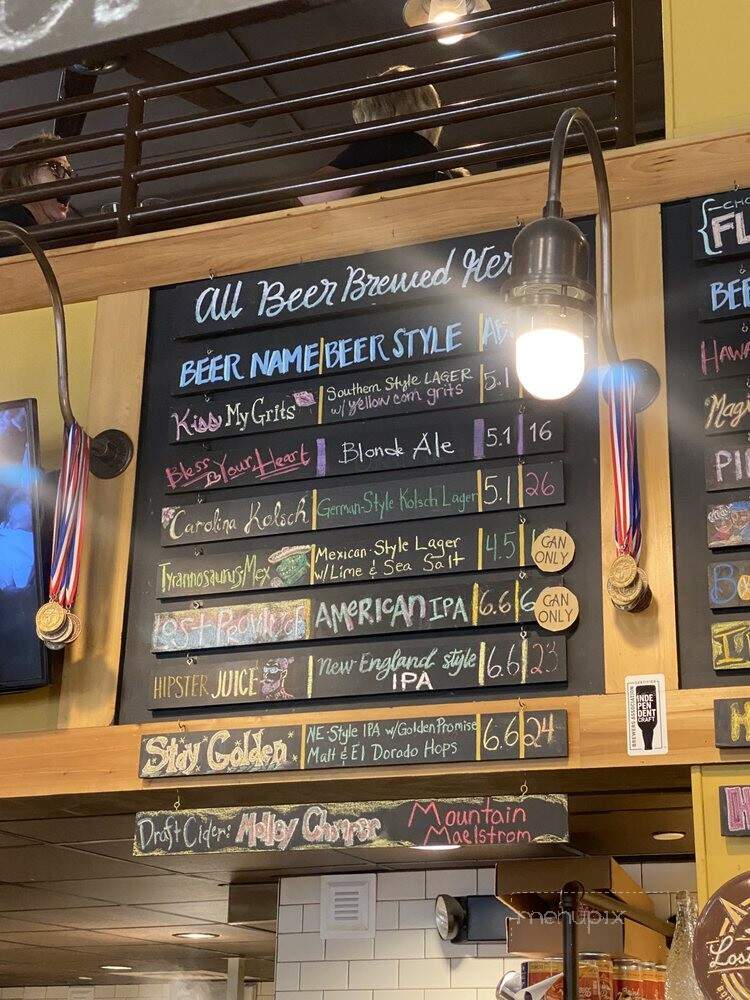 All Beer Brewed Her
BEER NAME BEER STYLE AB
Kiss My Grits Southern Style LAGER 5.1
w/ yellow corn grits
Bless Your Heart Blonde Ale 5.1 16
Carolina Kolsch German-Style Kolsch Lager 5.1 26
Tyrannosaurus Mex Mexican-Style Lager 4.5
w/Lime & Sea Salt
CAN
ONLY
LOST PROVINCE AMERICAN IPA 6.6 6
CAN
ONLY
HIPSTER JUICE New England style 6.6 23
IPA
Stay Golden NE-Style IPA w/Golden Promise 6.6 24
Malt & El Dorado Hops
Draft Cider: Molley Chomper Mountain
Maelstrom
CERTIFIED
INDE
PEN
DENT
CRAFT
BREWERS ASSOCIATION
FL
BEE
HAWA
Magi
PI
menupix
Lost